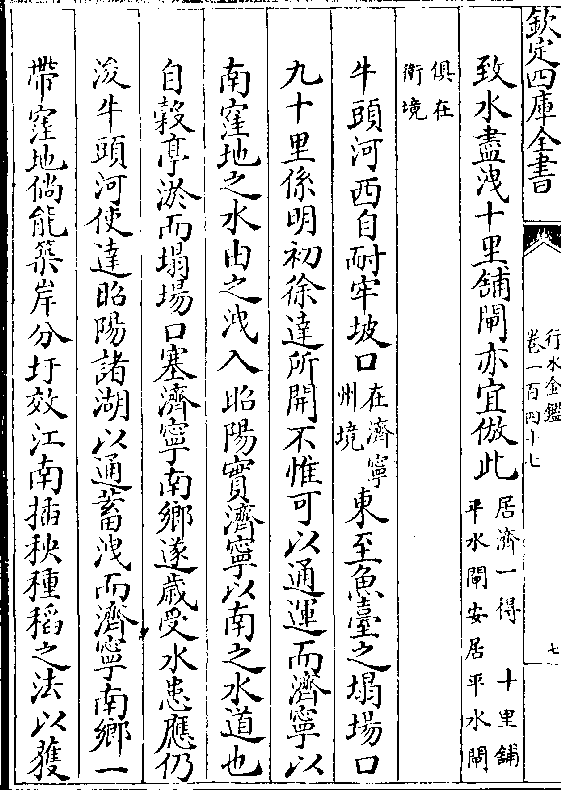 欽定四庫全書
行水金鑑
卷一百四十七
七
致水盡洩十里舖閘亦宜倣此居濟一得 十里舖
平水閘安居平水閘
俱在
衛境
牛頭河西自耐牢坡口在濟寧
州境東至魚臺之塌場口
九十里係明初徐達所開不惟可以通運而濟寧以
南窪地之水由之洩入昭陽實濟寧以南之水道也
自穀亭淤而塌場口塞濟寧南鄉遂歲受水患應仍
浚牛頭河使達昭陽諸湖以通蓄洩而濟寧南鄉一
帶窪地倘能築岸分圩效江南插秧種稻之法以獲